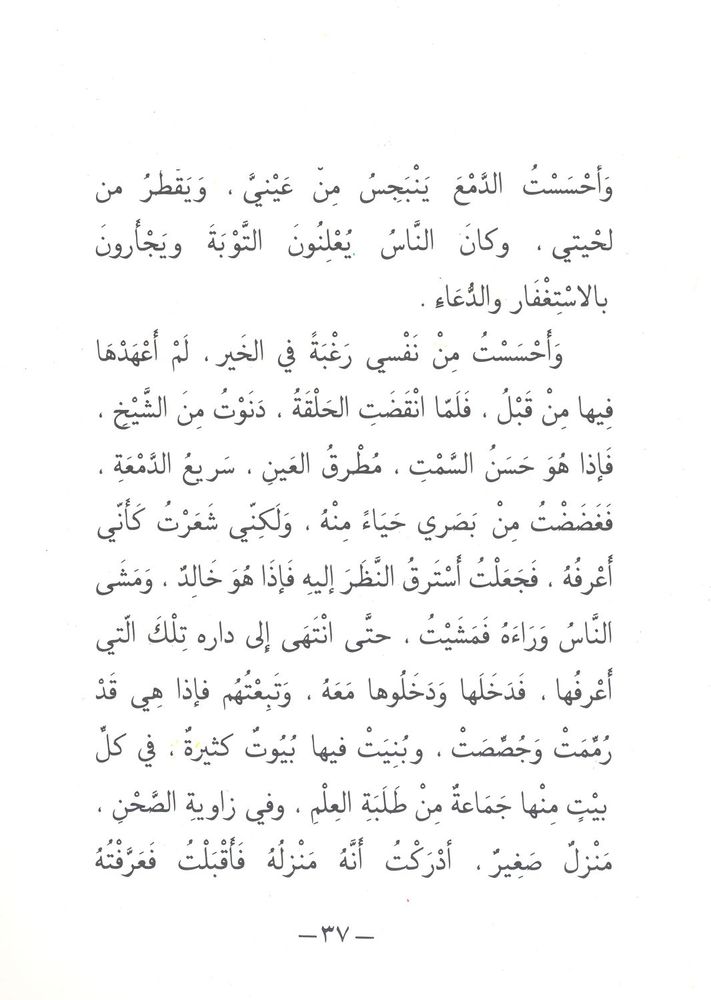 وَأَحْسَسْتُ الدَّمْعَ يَنْبَجِسُ مِنْ عَيْنيَّ ، وَيَقْطرُ من
لحْيتي ، وكانَ النَّاسُ يُعْلِنُونَ التَّوْبَةَ ويَجْأَرونَ
بالاسْتِغْفَار والدُّعَاءِ .
وَأَحْسَسْتُ مِنْ نَفْسي رَغْبَةً في الخَير ، لَمْ أَعْهَدْهَا
فِيها مِنْ قَبْلُ ، فَلَمّا انْقَضَتِ الحَلْقَةُ ، دَنَوْتُ مِنَ الشَّيْخِ ،
فَإذا هُوَ حَسَنُ السَّمْتِ ، مُطْرقُ العَينِ ، سَريعُ الدَّمْعَةِ ،
فَغَضَضْتُ مِنْ بَصَري حَيَاءً مِنْهُ ، وَلَكِنّي شَعَرْتُ كَأَنّي
أَعْرفُهُ ، فَجَعَلْتُ أَسْتَرقُ النَّظَرَ إليهِ فَإذَا هُوَ خَالِدٌ ، وَمَشَى
النَّاسُ وَرَاءَهُ فَمَشَيْتُ ، حتَّى انْتَهَى إلى داره تِلْكَ الّتي
أَعْرفُها ، فَدَخَلَها وَدَخَلُوها مَعَهُ ، وَتَبِعْتُهُم فإذا هِي قَدْ
رُمِّمَتْ وَجُصِّصَتْ ، وبُنِيَتْ فيها بُيُوتٌ كثيرةٌ ، في كلِّ
بيْتٍ مِنْها جَمَاعةٌ مِنْ طَلَبَةِ العِلْمِ ، وفي زاويةِ الصَّحْنِ ،
مَنْزلٌ صَغِيرٌ ، أدْرَكْتُ أَنَّهُ مَنْزلُهُ فَأَقْبَلْتُ فَعَرَّفْتُهُ
– ٣٧ –